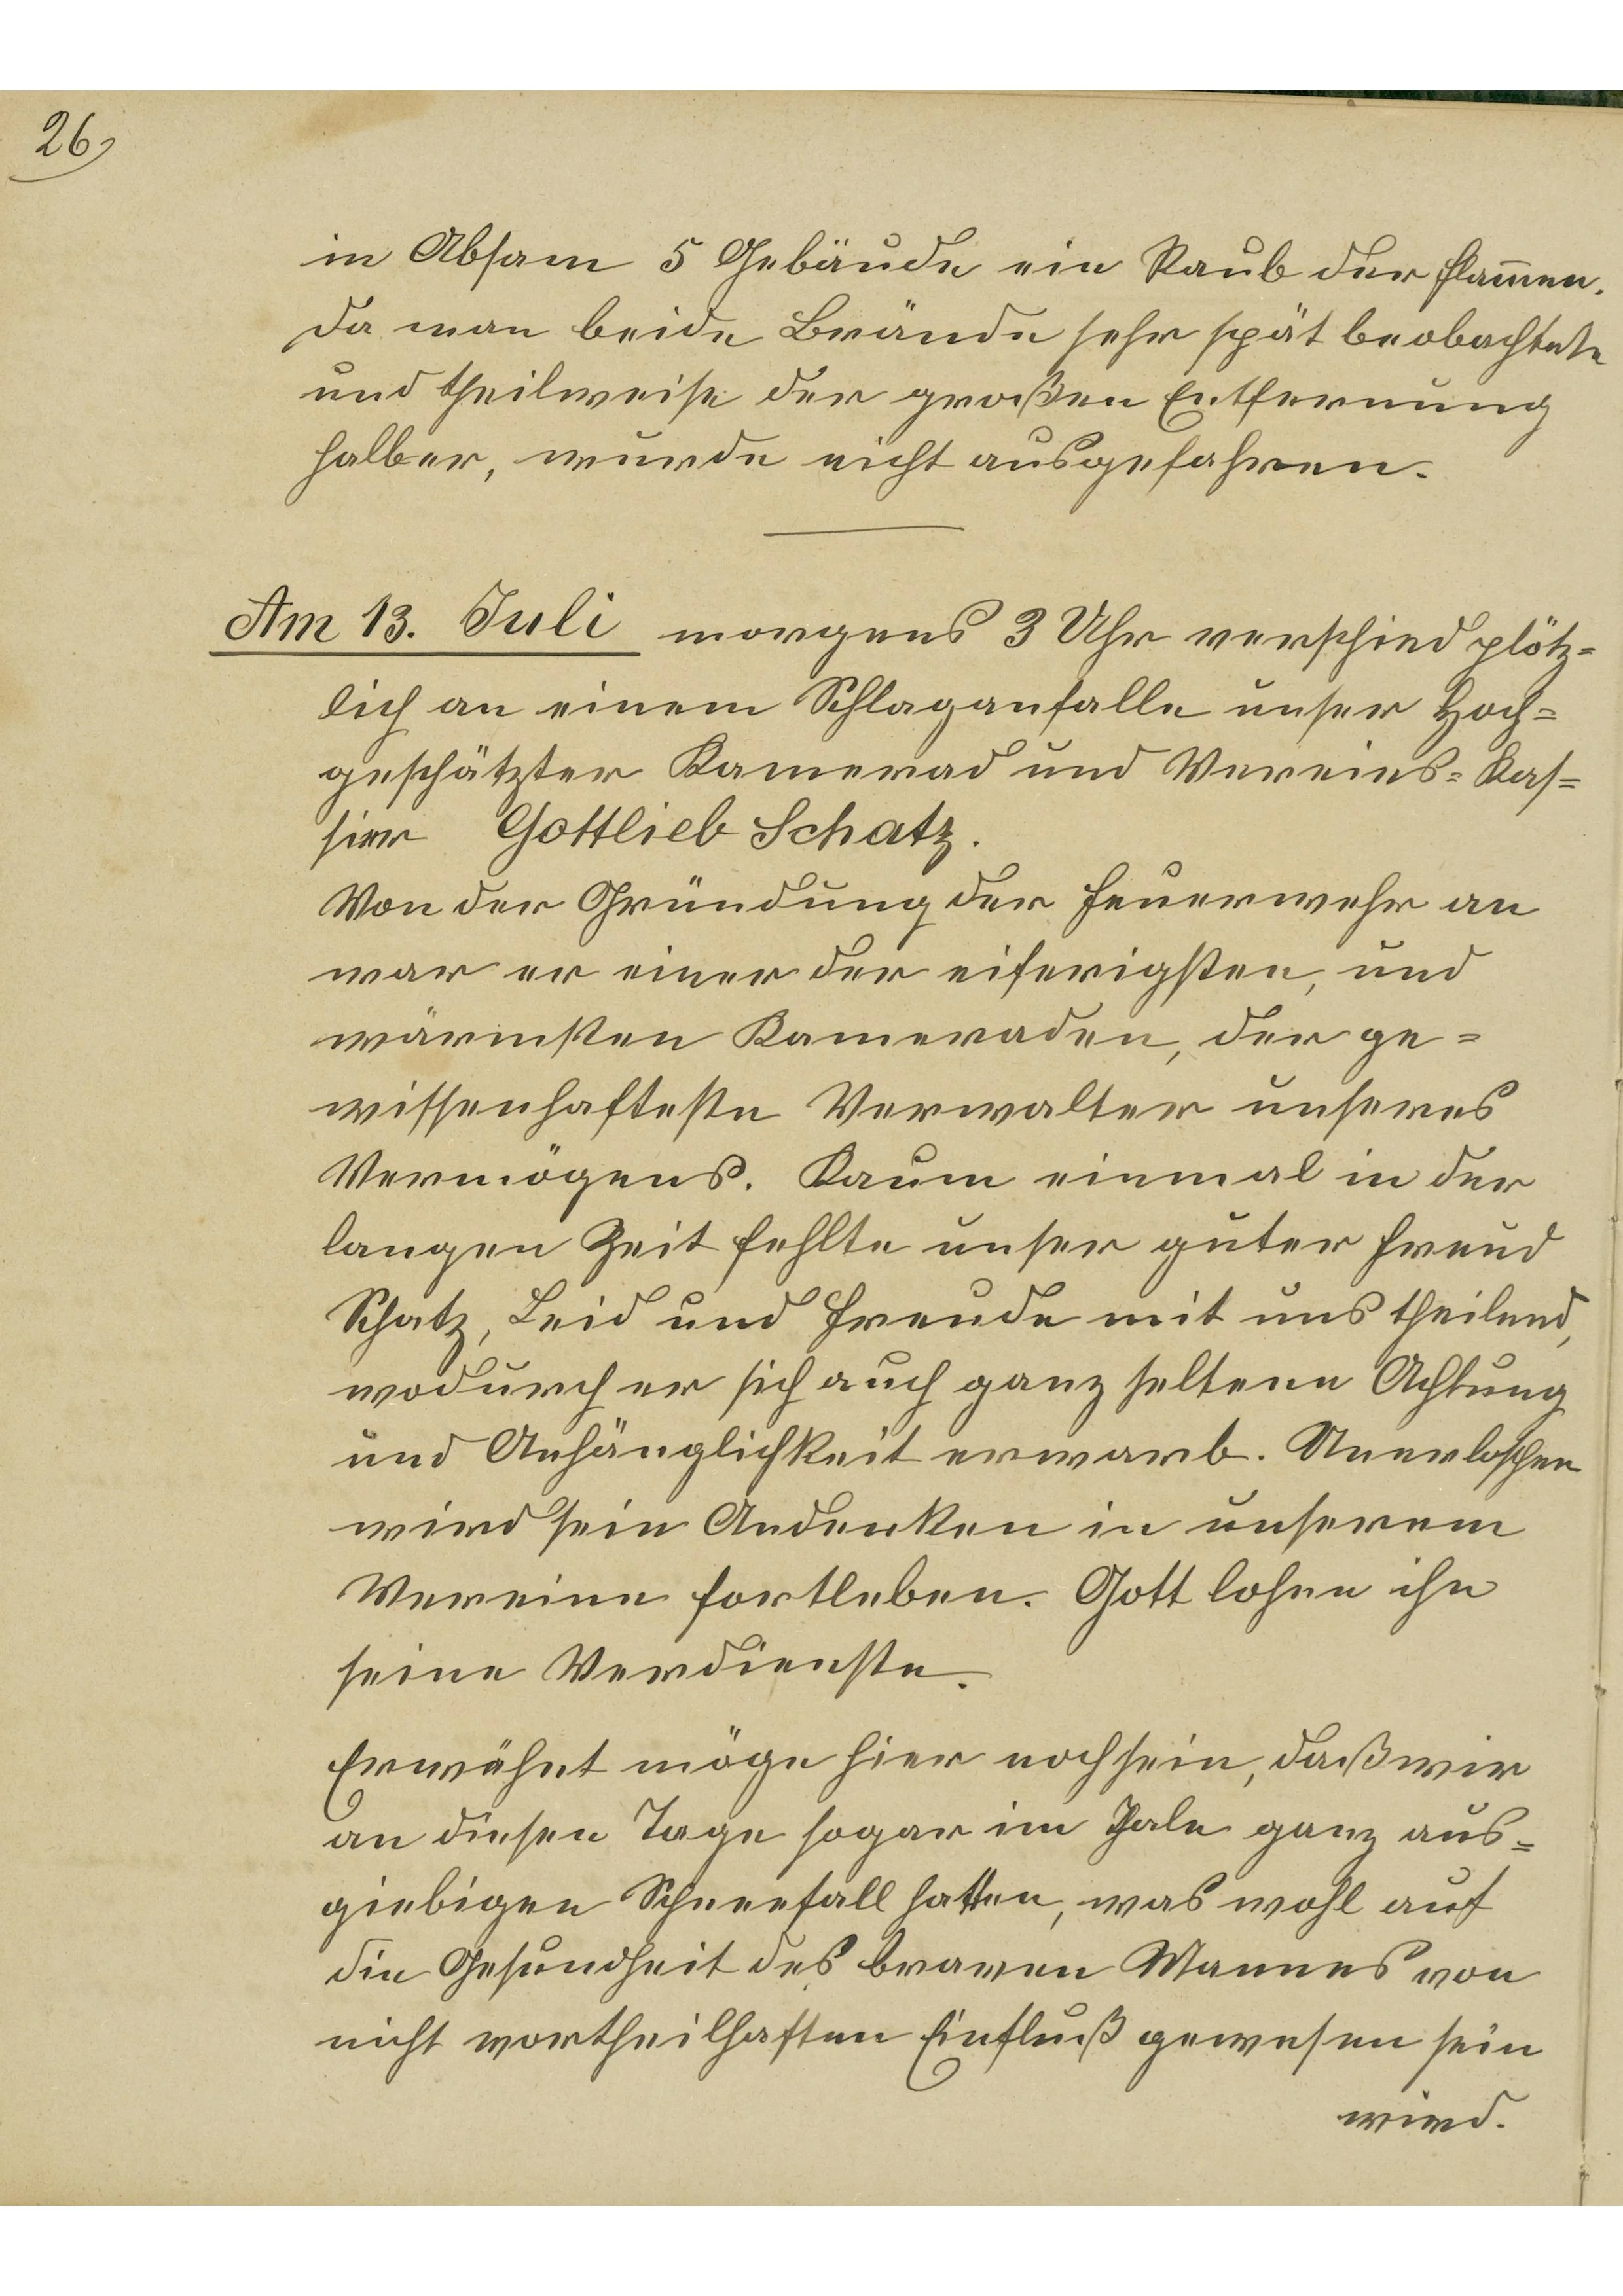 26,
in Absam 5 Gebäude ein Raub der Flam̄en.
Da man beide Brände sehr spät beobachtete
und theilweise der großen Entfernung
halber, wurde nicht ausgefahren.
Am 13. Juli morgens 3 Uhr verschied plötz=
lich an einem Schlaganfalle unser Hoch=
geschätzter Kamerad und Vereins=Kas=
sier Gottlieb Schatz.
Von der Gründung der Feuerwehr an
war er einer der eiferigsten, und
wärmsten Kameraden, der ge=
wissenhafteste Verwalter unseres
Vermögens. Kaum einmal in der
langen Zeit fehlte unser guter Freund
Schatz, Leid und Freude mit uns theilend,
wodurch er sich auch ganz seltene Achtung
und Anhänglichkeit erwarb. Unerloschen
wird sein Andenken in unserem
Vereine fortleben. Gott lohne ihn
seine Verdienste.
Erwähnt möge hier noch sein, daß wir
an diesen Tage sogar im Thale ganz aus=
giebigen Schneefall hatten, was wohl auf
die Gesundheit des braven Mannes von
nicht vortheilhaften Einfluß gewesen sein
wird.